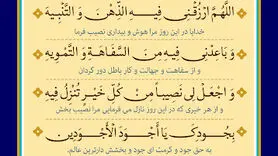 اللَّهُمَّ ارْزُقْنِي فِيهِ الذِّهْنَ وَ التَّنْبِيهَ
خدایا در این روز مرا هوش و بیداری نصیب فرما
وَ بَاعِدْنِي فِيهِ مِنَ السَّفَاهَةِ وَ التَّمْوِيهِ
و از سفاهت و جهالت و کار باطل دور گردان
وَ اجْعَلْ لِي نَصِيباً مِنْ كُلِّ خَيْرٍ تُنْزِلُ فِيهِ
و از هر خیری که در این روز نازل می فرمایی مرا نصیب بخش
بِجُودِكَ يَا أَجْوَدَ الْأَجْوَدِينَ
به حق جود و کرمت ای جود و بخشش دارترین عالم.